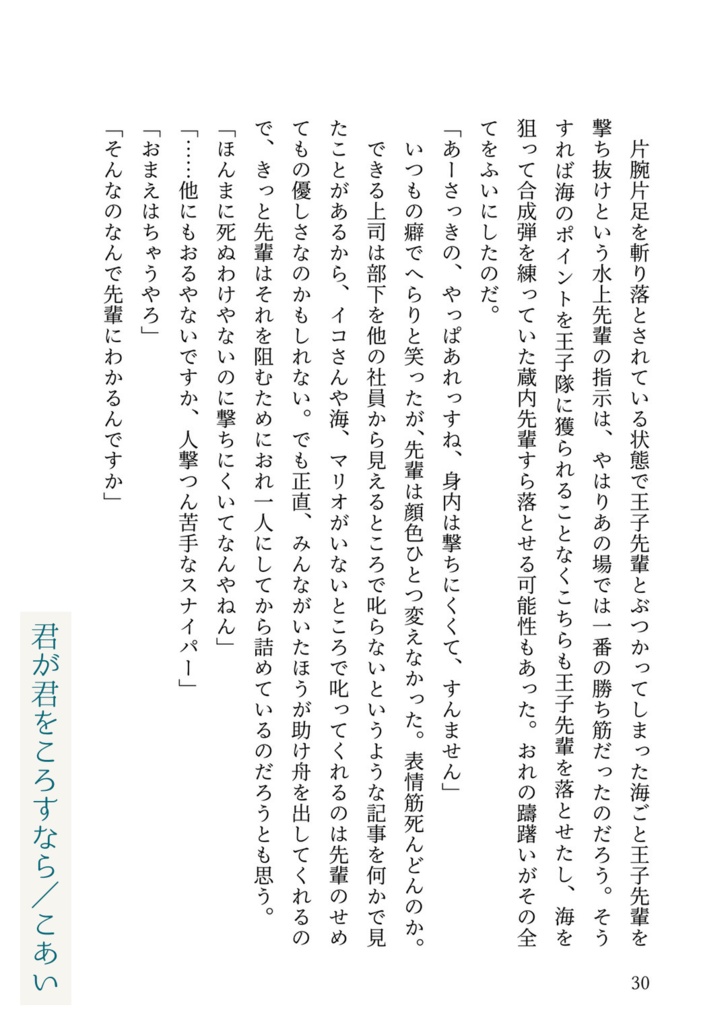 片腕片足を斬り落とされている状態で王子先輩とぶつかってしまった海ごと王子先輩を
撃ち抜けという水上先輩の指示は、やはりあの場では一番の勝ち筋だったのだろう。そう
すれば海のポイントを王子隊に獲られることなくこちらも王子先輩を落とせたし、海を
狙って合成弾を練っていた蔵内先輩すら落とせる可能性もあった。おれの躊躇いがその全
てをふいにしたのだ。
「あーさっきの、やっぱあれっすね、身内は撃ちにくくて、すんません」
いつもの癖でへらりと笑ったが、先輩は顔色ひとつ変えなかった。表情筋死んどんのか。
できる上司は部下を他の社員から見えるところで叱らないというような記事を何かで見
たことがあるから、イコさんや海、マリオがいないところで叱ってくれるのは先輩のせめ
てもの優しさなのかもしれない。でも正直、みんながいたほうが助け舟を出してくれるの
で、きっと先輩はそれを阻むためにおれ一人にしてから詰めているのだろうとも思う。
「ほんまに死ぬわけやないのに撃ちにくいてなんやねん」
「……他にもおるやないですか、人撃つん苦手なスナイパー」
「おまえはちゃうやろ」
「そんなのなんで先輩にわかるんですか」
君が君をころすなら／こあい
30